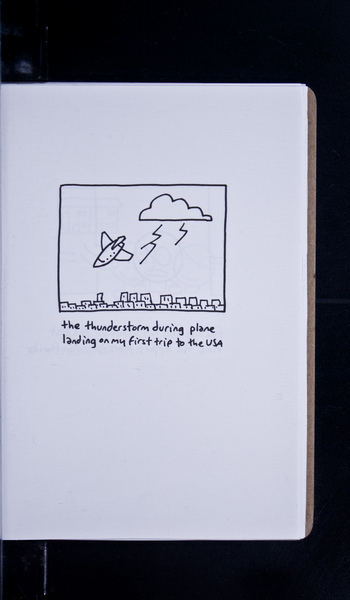 the thunderstorm during plane
landing on my first trip to the USA